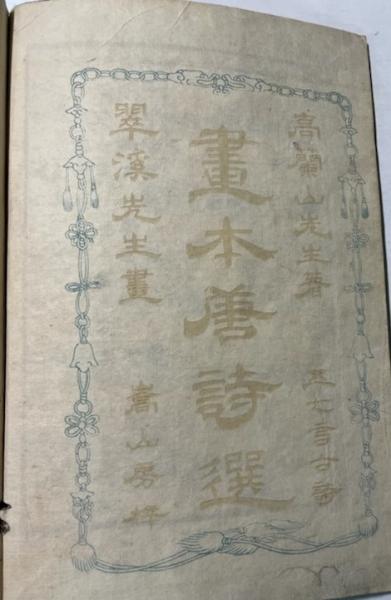 高蘭山先生著 五七言古詩
畫本唐詩選
翠溪先生畫 嵩山房梓